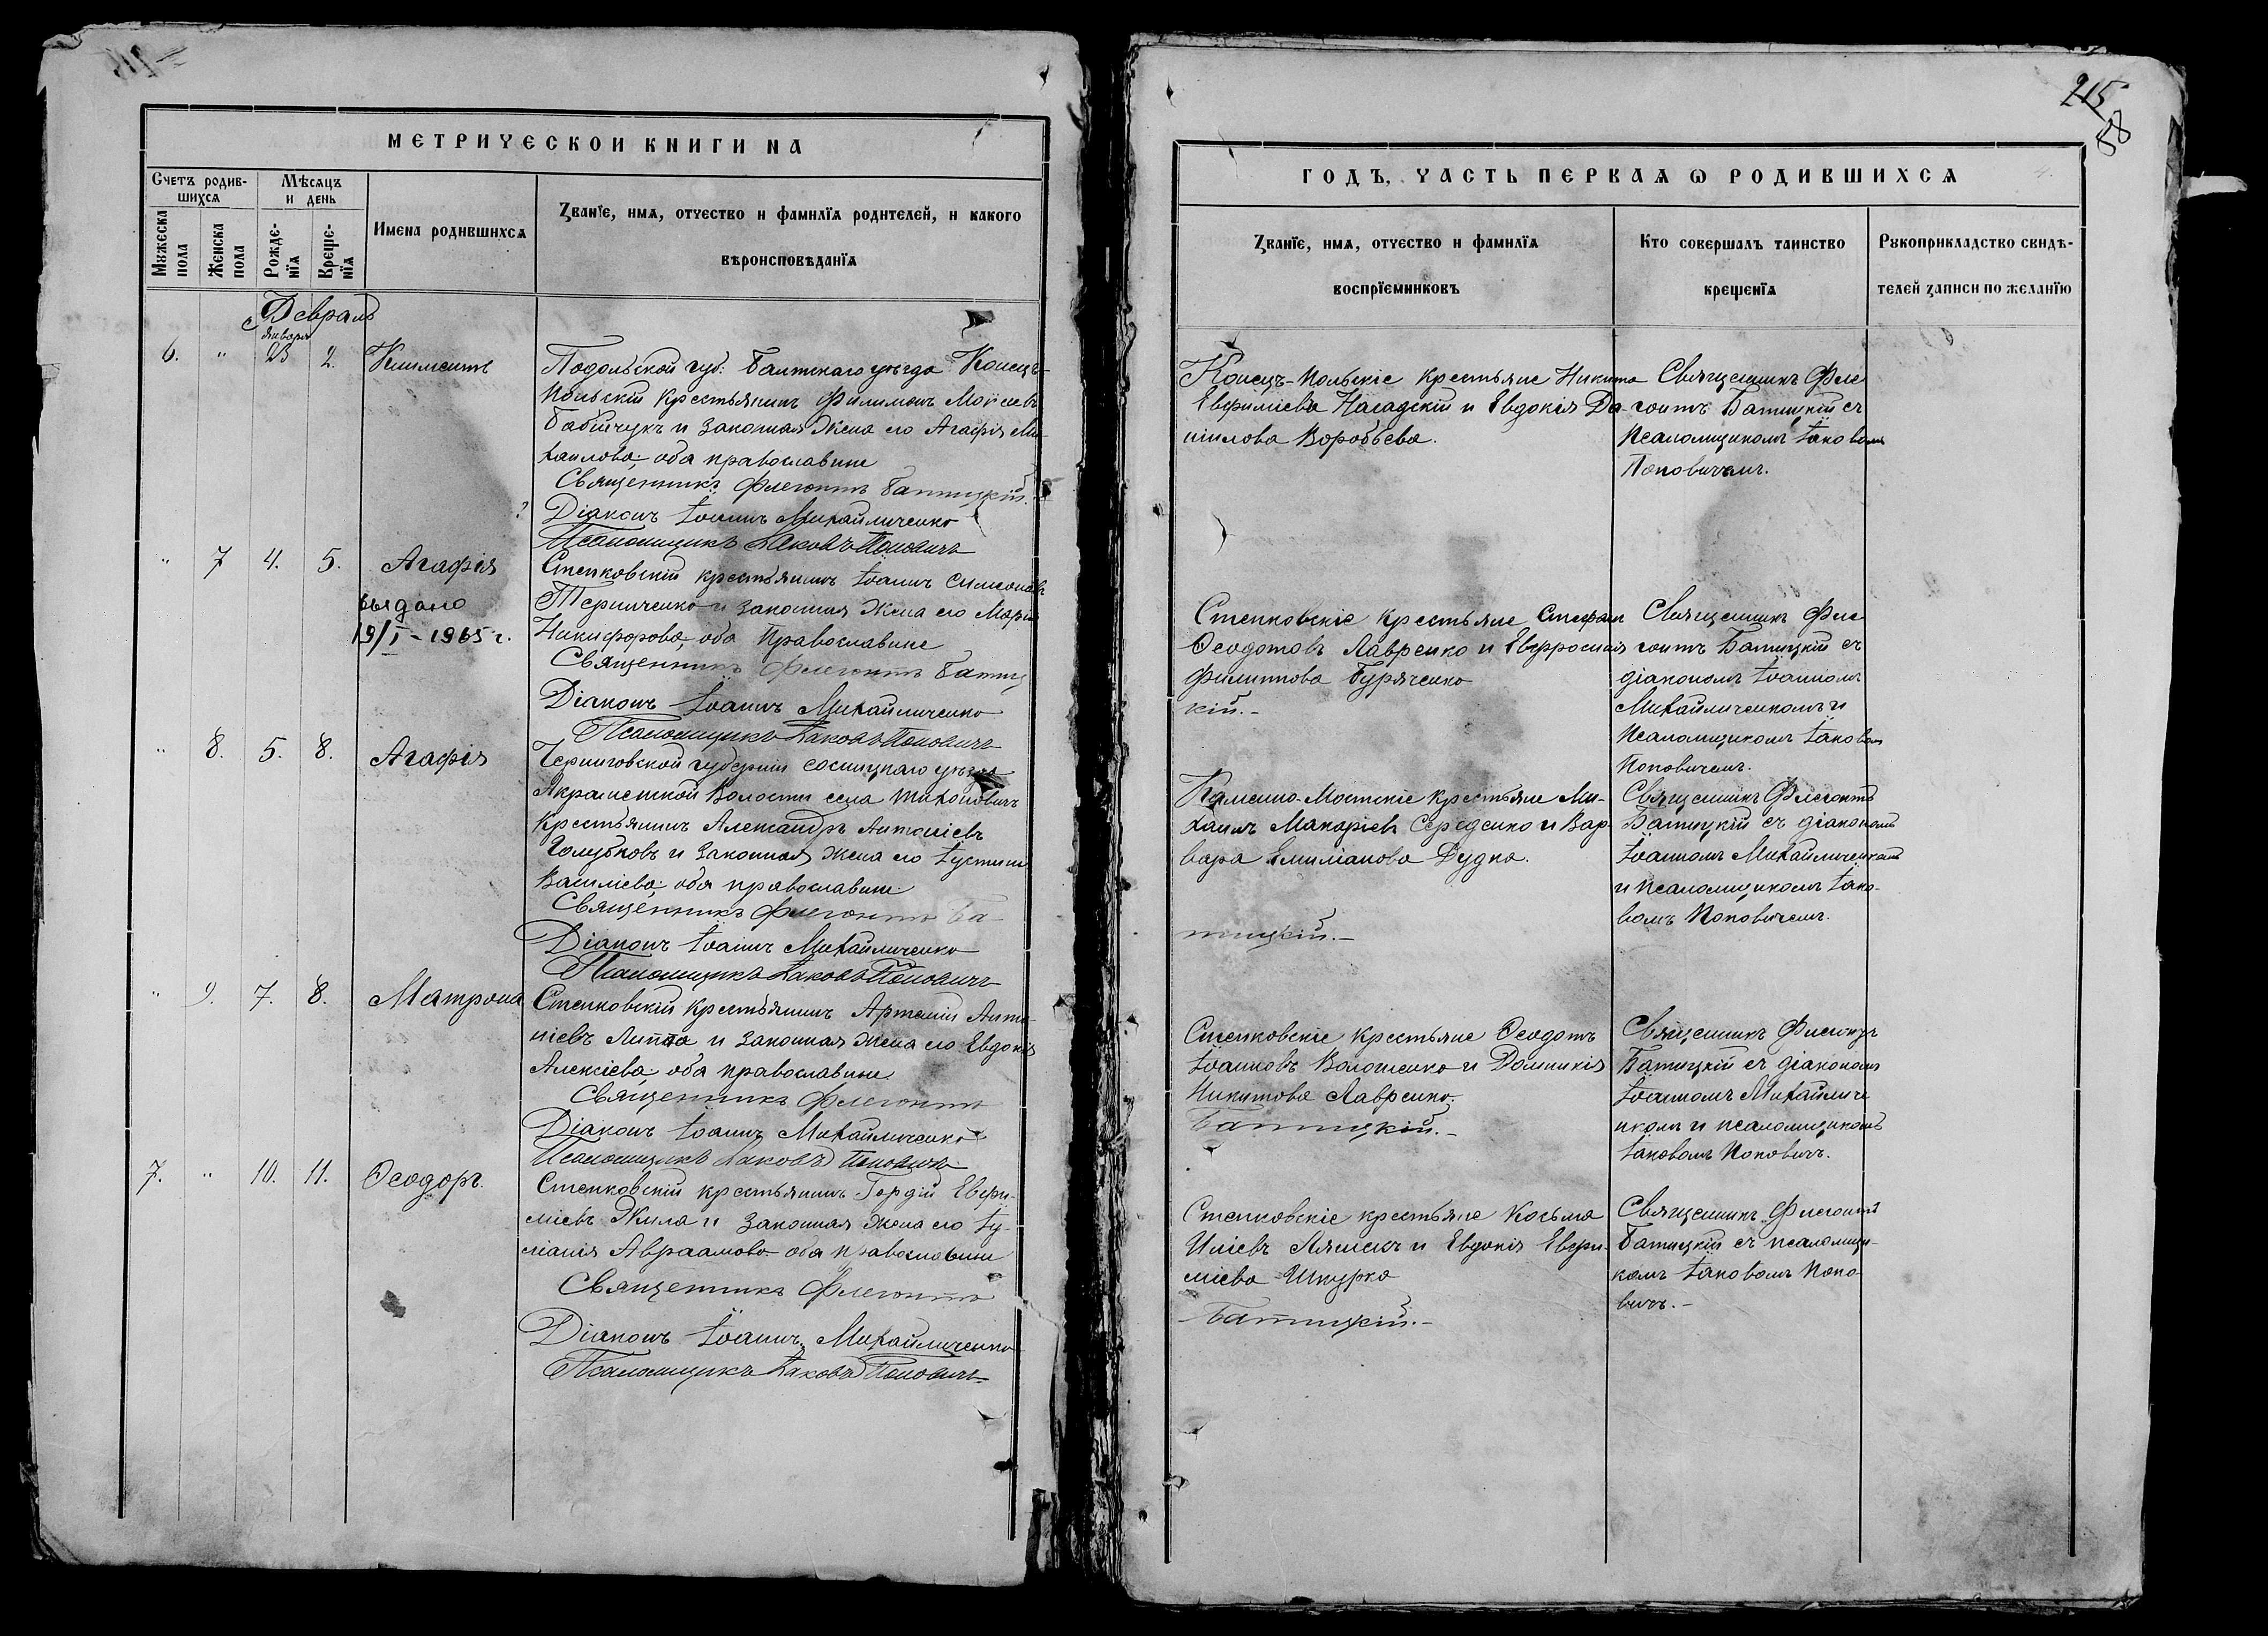 215
58
МЕТРИЧЕСКОЙ КНИГИ НА
Счетъ родив-
шихся
Мѣсяцъ
и день
Мужеска
пола
Женска
пола
Рожде-
нїя
Креще-
нїя
Имена родившихся
Званїе, имя, отчество и фамилїя родителей, и какого
вѣроисповѣданїя
Февраль
января
6. " 23 2. Климентъ
Подольской губ: Балтскаго уѣзда Конецъ-
польскій крестьянинъ Филимонъ Моисеевъ
Бабійчукъ и законная жена его Агафія Ми-
хаилова, оба православные
Священникъ Флегонтъ Батицкій.
Діаконъ Іоаннъ Михайличенко
Псаломщикъ Іаковъ Поповичъ
" 7 4. 5. Агафія
выдано
19/I-1965 г.
Степковскій крестьянинъ Іоаннъ Симеоновъ
и законная жена его Марія
Никифорова, оба Православные
Священникъ Флегонтъ Батиц
Діаконъ Іоаннъ Михайличенко
Псаломщикъ Іаковъ Поповичъ
" 8. 5. 8. Агафія
Черниговской губерніи Сосницкаго уѣзда
волости села
крестьянинъ Александръ Антоніевъ
Голубковъ и законная жена его Іустина
Василіева, оба православные
Священникъ Флегонтъ Ба-
Діаконъ Іоаннъ Михайличенко
Псаломщикъ Іаковъ Поповичъ
" 9. 7. 8. Матрона
Степковскій крестьянинъ Артемій Анто-
ніевъ Липка и законная жена его Евдокія
Алексіева, оба православные.
Священникъ Флегонтъ
Діаконъ Іоаннъ Михайличенко
Псаломщикъ Іаковъ Поповичъ
7. " 10. 11. Ѳеодоръ.
Степковскій крестьянинъ Гордій Евфи-
міевъ Жила и законная жена его Іу-
ліанія Авраамова оба православные
Священникъ Флегонтъ
Діаконъ Іоаннъ Михайличенко
Псаломщикъ Іаковъ Поповичъ
ГОДЪ, ЧАСТЬ ПЕРВАЯ Ѡ РОДИВШИХСЯ
Званїе, имя, отчество и фамилїя
воспрїемниковъ
Кто совершалъ таинство
крещенїя
Рукоприкладство свидѣ-
телей записи по желанїю
Конецъ-польскіе крестьяне Никита
Евфиміевъ Нагадскій и Евдокія Да-
ніилова Воробьева.
Священникъ Фле
гонтъ Батицкій съ
псаломщикомъ Іаковомъ
Поповичемъ.
Степковскіе крестьяне Стефан
Ѳеодотовъ Лавренко и Евфросинія
Филиппова Буряченко
кій.-
Священникъ Фле
гонтъ Батицкій съ
діакономъ Іоанномъ
Михайличенкомъ и
псаломщикомъ Іаковом
Поповичемъ.
Каменно-Мостскіе крестьяне Ми-
хаилъ Макаріевъ Середенко и Вар-
вара Емиліанова Дудка.
тицкій.-
Священникъ Флегонтъ
Батицкій съ діакономъ
Іоанномъ Михайличенкомъ
и псаломщикомъ Іако-
вомъ Поповичемъ.
Степковскіе крестьяне Ѳеодотъ
Іоанновъ Волошенко и Домникія
Никитова Лавренко.
Батицкій.-
Священникъ Флегонтъ
Батицкій съ діакономъ
Іоанномъ Михайличе
нкомъ и псаломщикомъ
Іаковомъ Поповичъ.
Степковскіе крестьяне Косьма
Иліевъ Ляшекъ и Евдокія Евфи-
міева Шкурко
Батицкій.-
Священникъ Флегонтъ
Батицкій съ псаломщи-
комъ Іаковомъ Попо-
вичъ.-